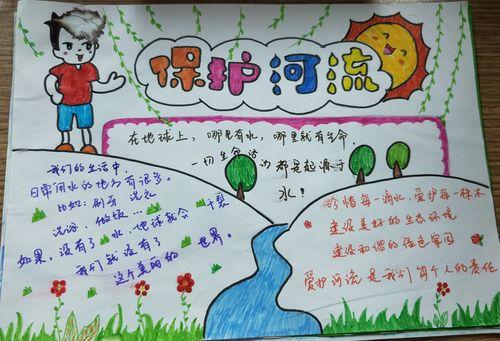 保护河流
在地球上，哪里有水，哪里就有生命。
一切生命活动都是起源于
水！
我们的生活中，
日常用水的地方有很多。
比如：刷牙 洗衣
洗浴、做饭...
没有了水，地球就会干裂
如果，我们就没有了
这个美丽的世界。
珍惜每一滴水，爱护每一棵木
建设美好的生态环境
建设和谐的绿色家园
爱护河流是我们每个人的责任